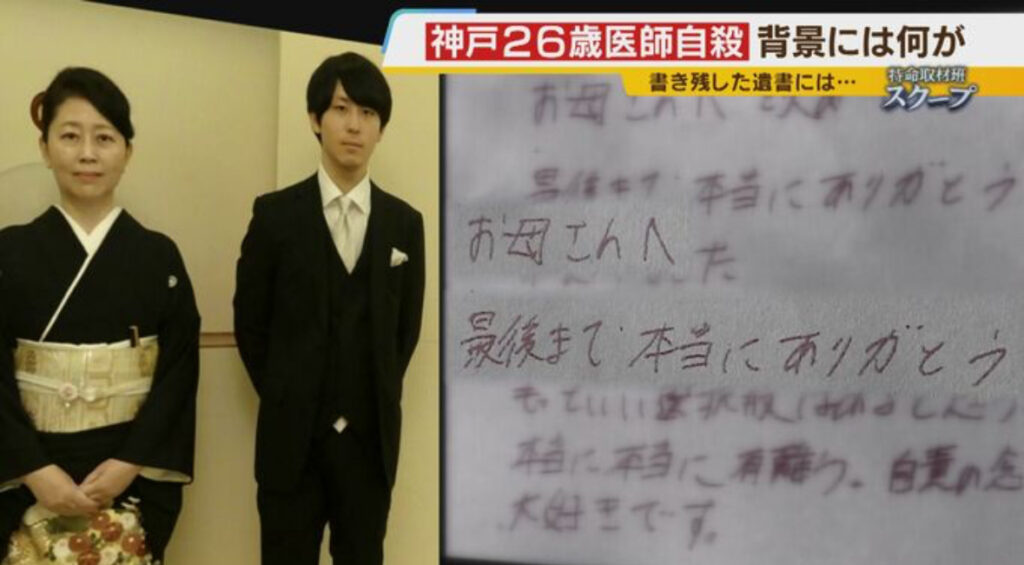 神戸26歳医師自殺 背景には何が
書き残した遺書には…
特命取材班
スクープ
お母さんへ
本当にありがとう
お母さんへ
た
最後まで 本当にありがとう
本当に本当に有難う。自責の念
大好きです。